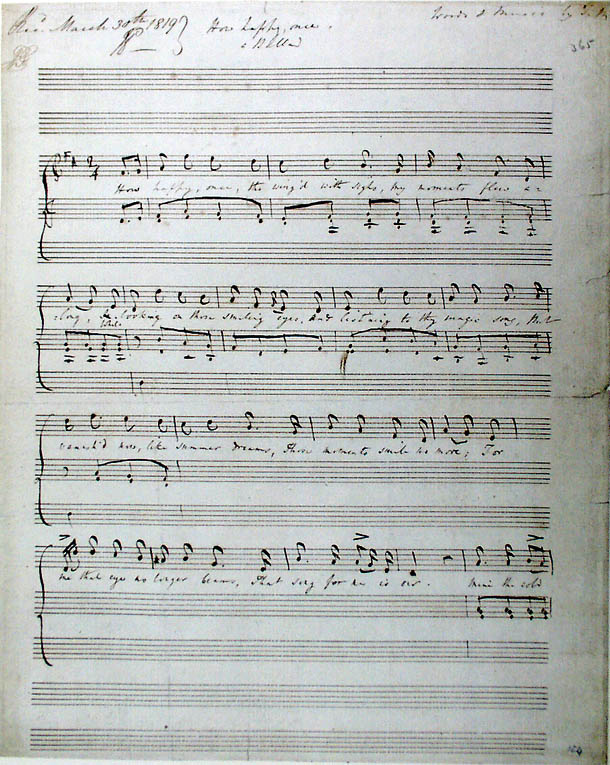 Rec. March 30th 1819
How happy, once,
a Ballad
Words & Music by T.
365
How happy, once, tho' wing'd with sighs, My moments flew a-
-long, While looking on those smiling eyes, And list'ning to thy magic song, But
vanish'd now, like summer dreams, Those moments smile no more; For
me that eye no longer beams, That song for me is o'er. Mine the cold